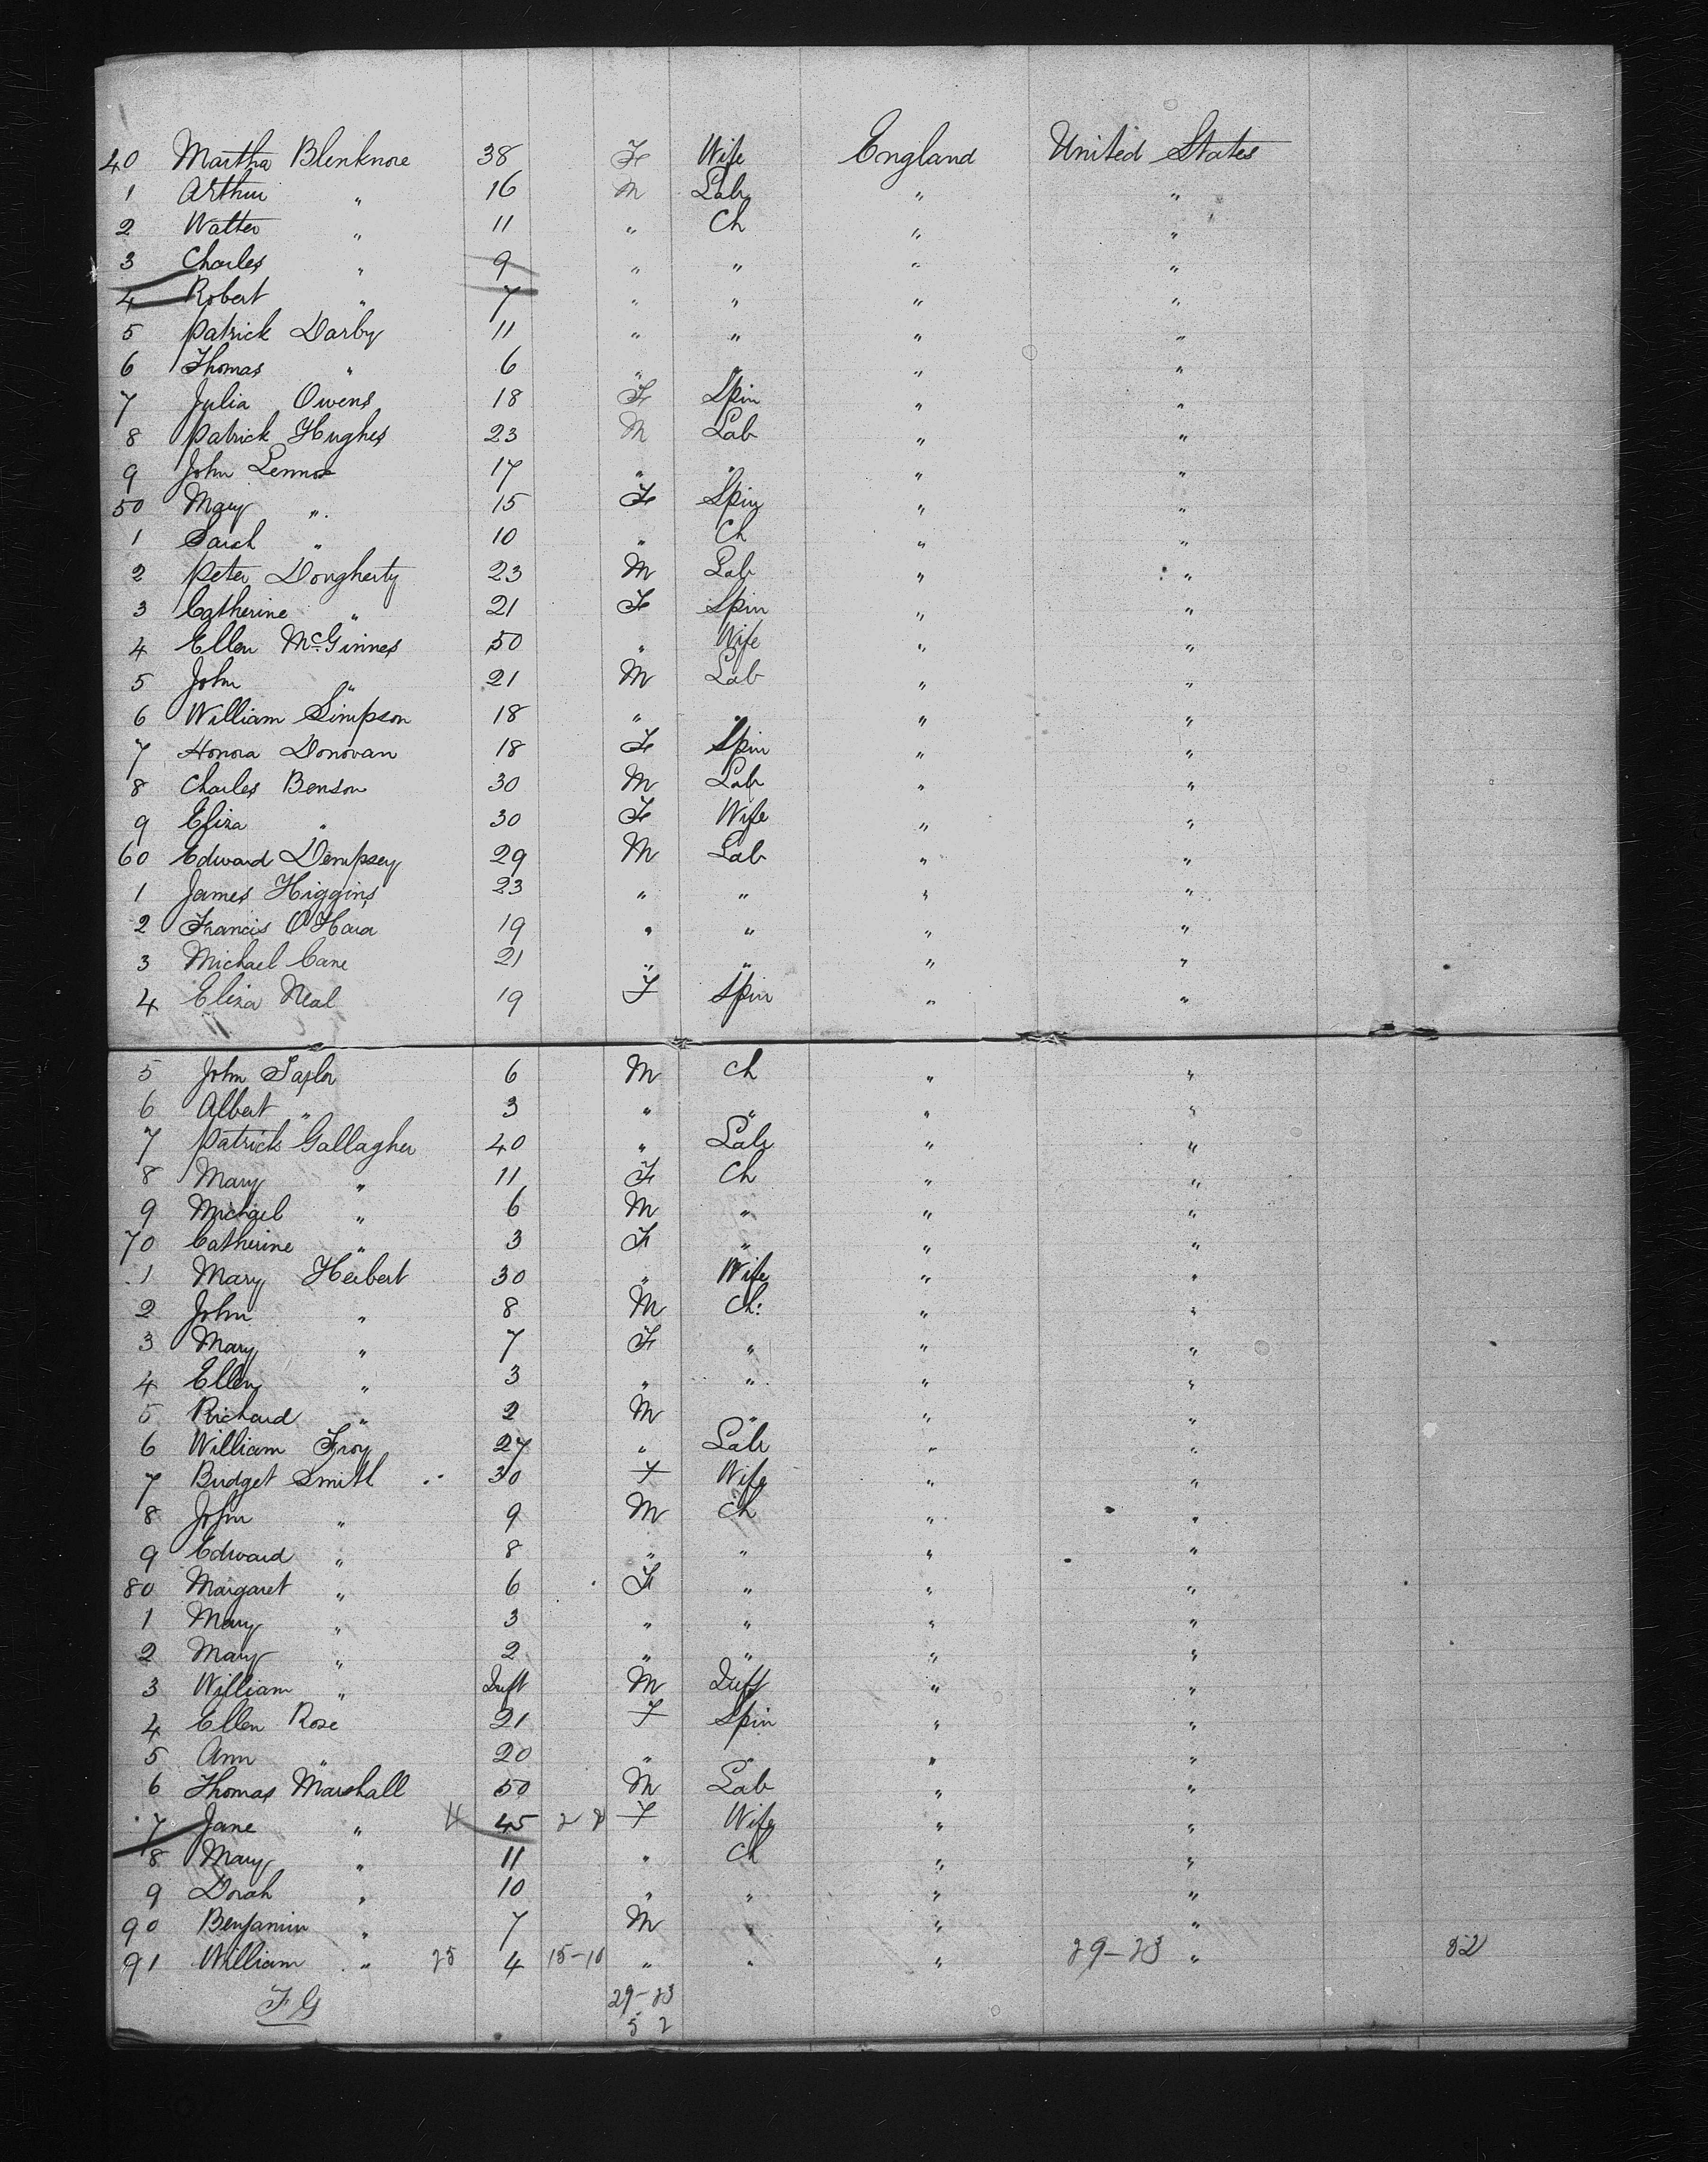 40 Martha Blenknore 38 F Wife England United States
1 Arthur " 16 M Lab " "
2 Walter " 11 " Ch " "
3 Charles " 9 " " " "
4 Robert " 7 " " " "
5 Patrick Darby 11 " " " "
6 Thomas " 6 " " " "
7 Julia Owens 18 F Spin " "
8 Patrick Hughes 23 M Lab " "
9 John Lennox 17 " " " "
50 Mary " 15 F Spin " "
1 Sarah " 10 " Ch " "
2 Peter Dougherty 23 M Lab " "
3 Catherine " 21 F Spin " "
4 Ellen McGinnes 50 " Wife " "
5 John " 21 M Lab " "
6 William Simpson 18 " " " "
7 Honora Donovan 18 F Spin " "
8 Charles Benson 30 M Lab " "
9 Eliza " 30 F Wife " "
60 Edward Dempsey 29 M Lab " "
1 James Higgins 23 " " " "
2 Francis O'Hara 19 " " " "
3 Michael Cane 21 " " " "
4 Eliza Neal 19 F Spin " "
5 John Taylor 6 M Ch " "
6 Albert " 3 " " " "
7 Patrick Gallagher 40 " Lab " "
8 Mary " 11 F Ch " "
9 Michael " 6 M " " "
70 Catherine " 3 F " " "
1 Mary Herbert 30 " Wife " "
2 John " 8 M Ch: " "
3 Mary " 7 F " " "
4 Ellen " 3 " " " "
5 Richard " 2 M " " "
6 William Troy 27 " Lab " "
7 Bridget Smith 30 F Wife " "
8 John " 9 M Ch " "
9 Edward " 8 " " " "
80 Margaret " 6 F " " "
1 Mary " 3 " " " "
2 Mary " 2 " " " "
3 William " Inft M Inft " "
4 Ellen Rose 21 F Spin " "
5 Ann " 20 " " " "
6 Thomas Marshall 50 M Lab " "
7 Jane " 45 F Wife " "
8 Mary " 11 " Ch " "
9 Dorah " 10 " " " "
90 Benjamin " 7 M " " "
91 William " 25 4 15-10 " " " 29-23 " 52
F G 29-23
5 2